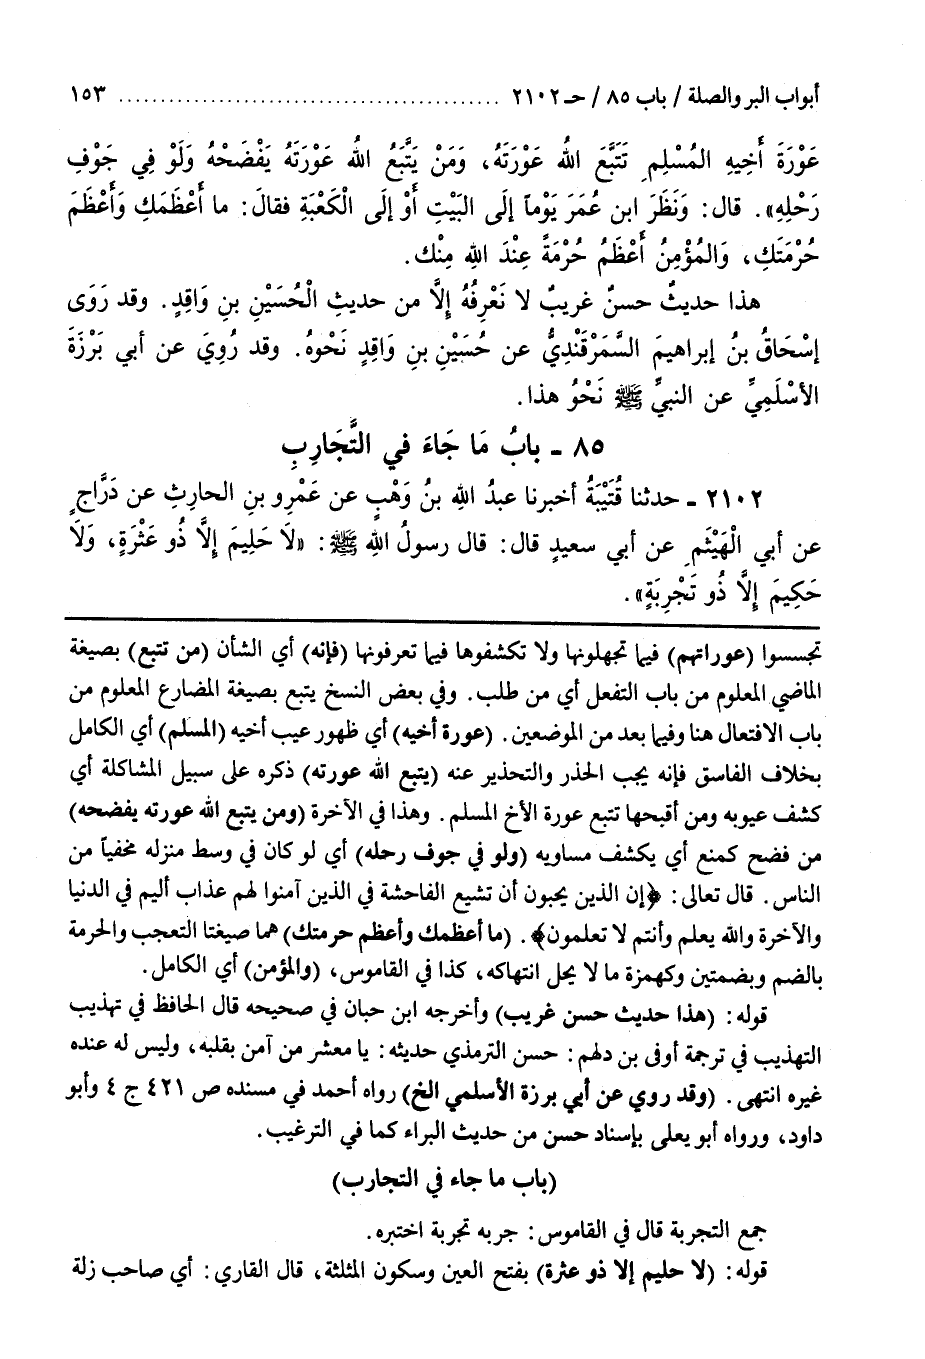 أبواب البر والصلة / باب ٨٥ / حـ ٢١٠٢ ............................................ ١٥٣
عَوْرَةَ أَخِيهِ المُسْلِمِ تَتَبَّعَ اللَّهُ عَوْرَتَهُ، وَمَنْ يَتَّبِعُ اللَّهُ عَوْرَتَهُ يَفْضَحْهُ وَلَوْ فِي جَوْفِ
رَحْلِهِ». قال: وَنَظَرَ ابن عُمَرَ يَوْماً إلَى البَيْتِ أَوْ إلَى الْكَعْبَةِ فقالَ: ما أَعْظَمَكِ وَأَعْظَمَ
حُرْمَتَكِ، وَالمُؤْمِنُ أَعْظَمُ حُرْمَةً عِنْدَ اللَّهِ مِنْكِ.
هذا حديثٌ حسنٌ غريبٌ لا نَعْرِفُهُ إلَّا من حديثِ الْحُسَيْنِ بنِ وَاقِدٍ. وقد رَوَى
إسْحَاقُ بنُ إبراهيمَ السَّمَرْقَنْدِيُّ عن حُسَيْنِ بنِ وَاقِدٍ نَحْوهُ. وقد رُوِيَ عن أبي بَرْزَةَ
الأسْلَمِيِّ عن النبيِّ ﷺ نَحْوُ هذا.
٨٥ - بابُ مَا جَاءَ في التَّجَارِبِ
٢١٠٢ - حدثنا قُتَيْبَةُ أخبرنا عبدُ اللَّهِ بنُ وَهْبٍ عن عَمْرِو بنِ الحارِثِ عن دَرَّاجٍ
عن أبي الْهَيْثَمِ عن أبي سعيدٍ قال: قال رسولُ اللَّهِ ﷺ: «لَا حَلِيمَ إلَّا ذُو عَثْرَةٍ، وَلَا
حَكِيمَ إلَّا ذُو تَجْرِبَةٍ».
تجسسوا (عوراتهم) فيما تجهلونها ولا تكشفوها فيما تعرفونها (فإنه) أي الشأن (من تتبع) بصيغة
الماضي المعلوم من باب التفعل أي من طلب. وفي بعض النسخ يتبع بصيغة المضارع المعلوم من
باب الافتعال هنا وفيما بعد من الموضعين. (عورة أخيه) أي ظهور عيب أخيه (المسلم) أي الكامل
بخلاف الفاسق فإنه يجب الحذر والتحذير عنه (يتبع الله عورته) ذكره على سبيل المشاكلة أي
كشف عيوبه ومن أقبحها تتبع عورة الأخ المسلم. وهذا في الآخرة (ومن يتبع الله عورته يفضحه)
من فضح كمنع أي يكشف مساويه (ولو في جوف رحله) أي لو كان في وسط منزله مخفياً من
الناس. قال تعالى: ﴿إن الذين يحبون أن تشيع الفاحشة في الذين آمنوا لهم عذاب أليم في الدنيا
والآخرة والله يعلم وأنتم لا تعلمون﴾. (ما أعظمك وأعظم حرمتك) هما صيغتا التعجب والحرمة
بالضم وبضمتين وكهمزة ما لا يحل انتهاكه، كذا في القاموس، (والمؤمن) أي الكامل.
قوله: (هذا حديث حسن غريب) وأخرجه ابن حبان في صحيحه قال الحافظ في تهذيب
التهذيب في ترجمة أوفى بن دلهم: حسن الترمذي حديثه: يا معشر من آمن بقلبه، وليس له عنده
غيره انتهى. (وقد روي عن أبي برزة الأسلمي الخ) رواه أحمد في مسنده ص ٤٢١ ج ٤ وأبو
داود، ورواه أبو يعلى بإسناد حسن من حديث البراء كما في الترغيب.
(باب ما جاء في التجارب)
جمع التجربة قال في القاموس: جربه تجربة اختبره.
قوله: (لا حليم إلا ذو عثرة) بفتح العين وسكون المثلثة، قال القاري: أي صاحب زلة